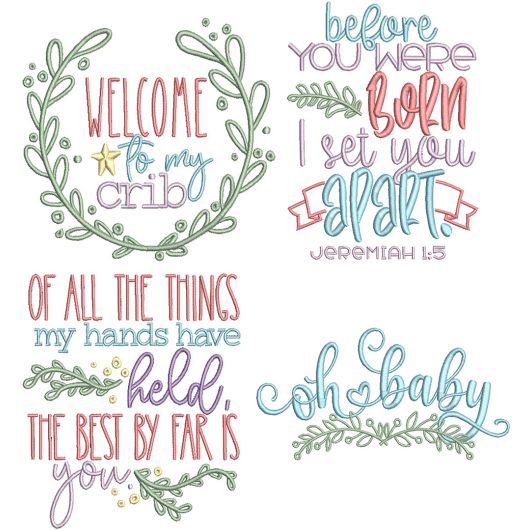 WELCOME
to my
crib
before
YOU WERE
BORN
I set you
APART.
JEREMIAH 1:5
OF ALL THE THINGS
my hands have
held,
THE BEST BY FAR IS
you.
oh baby